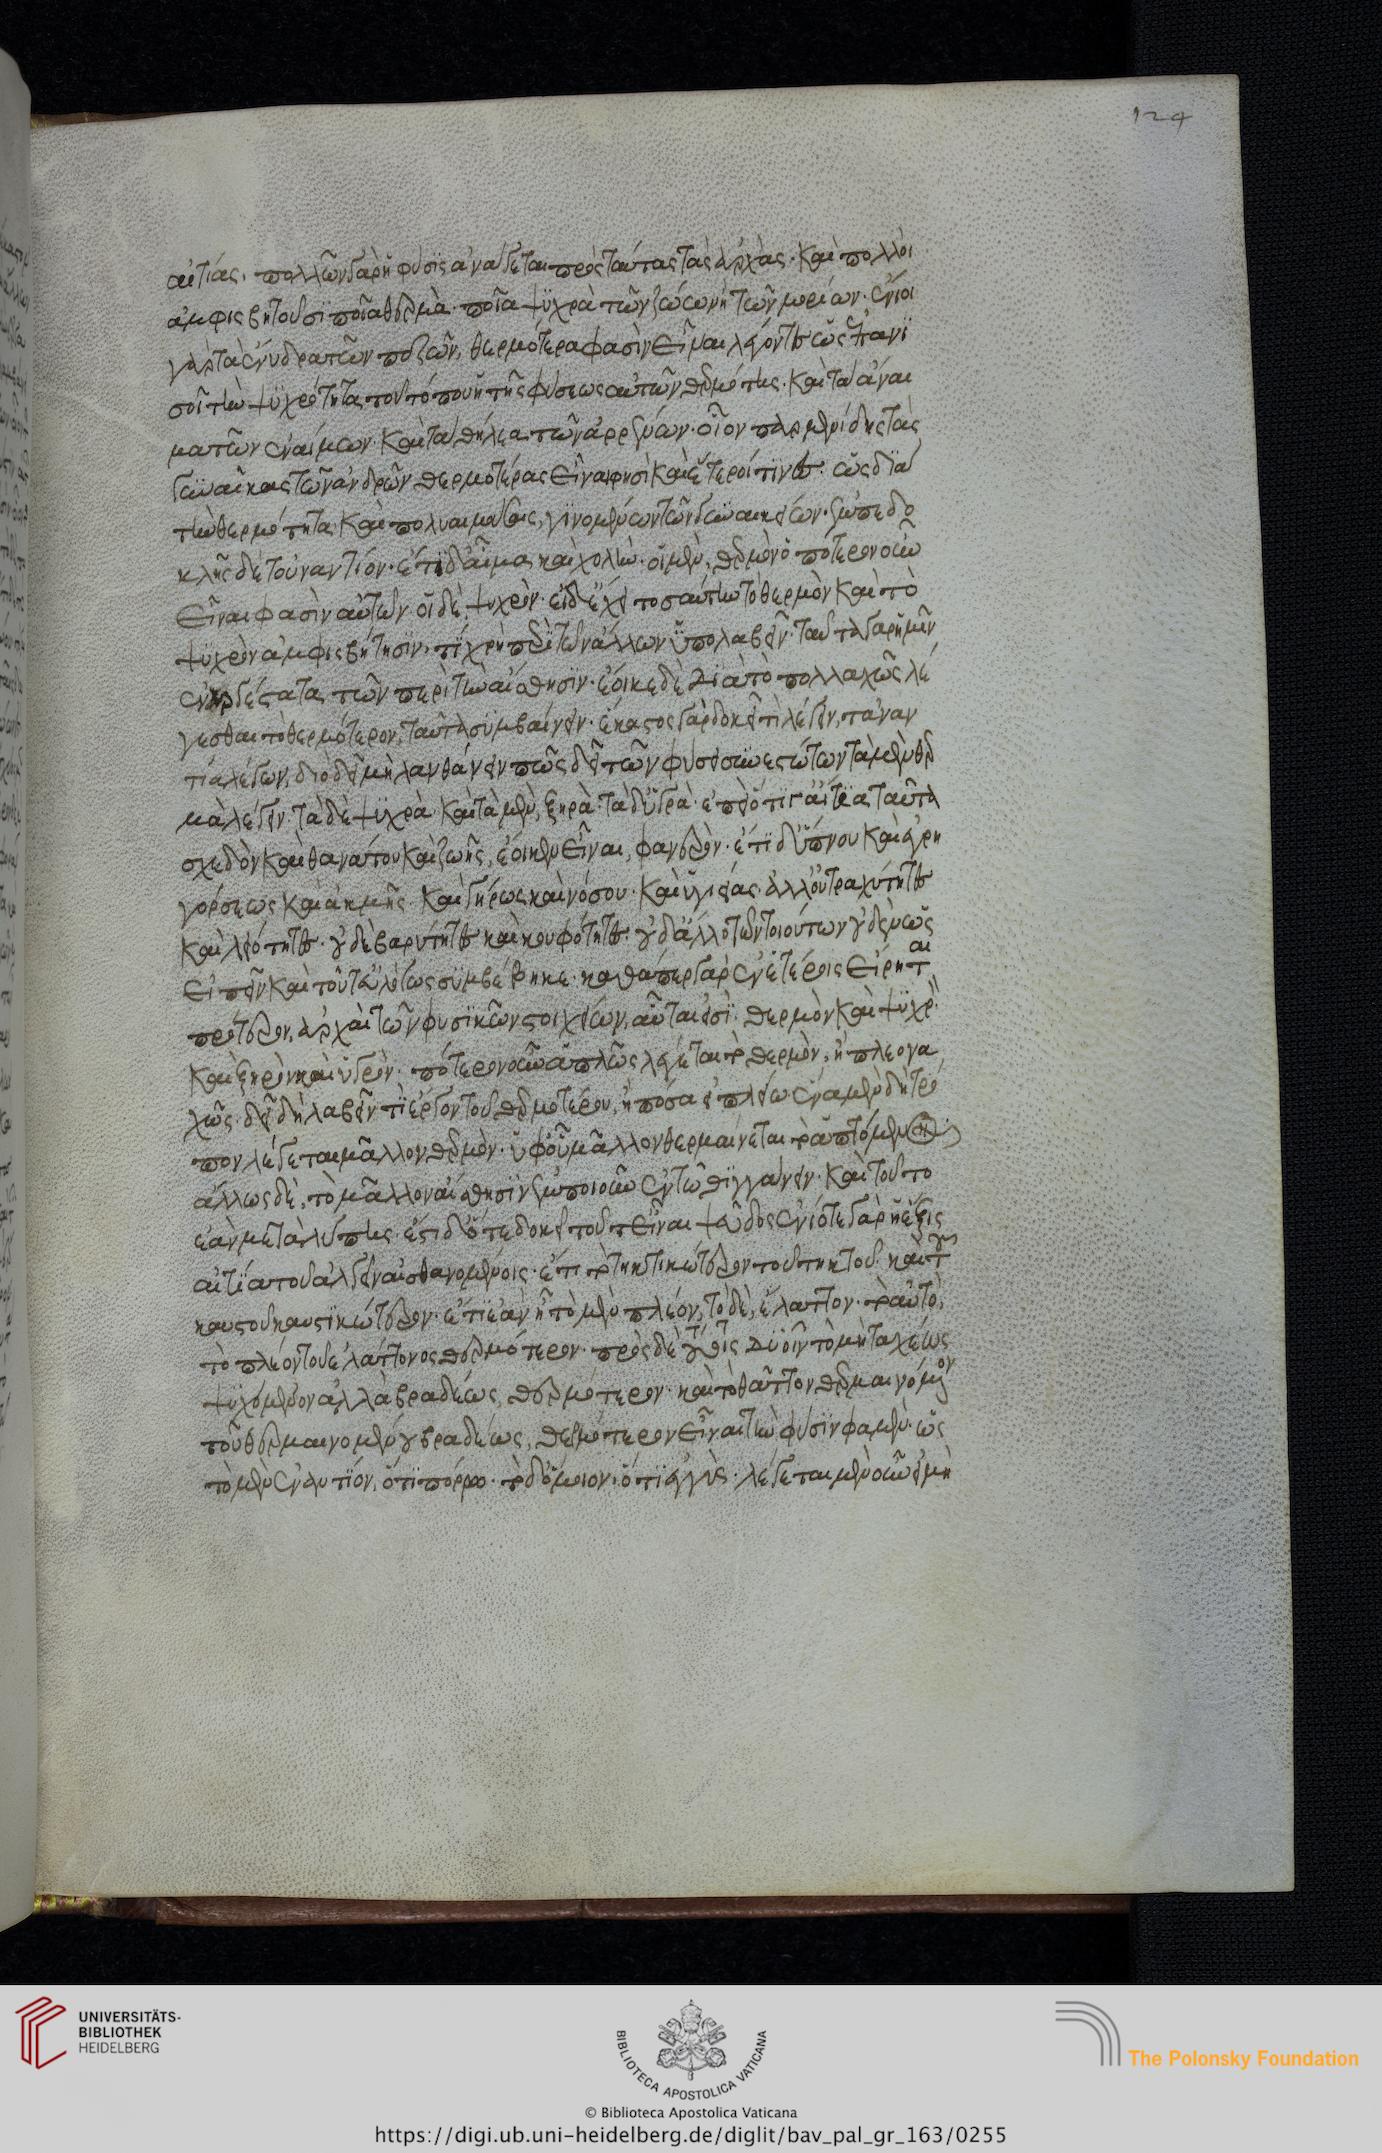 124
αἰτίας· πολλῶν γὰρ ἡ φύσις ἀνάγεται πρὸς ταύτας τὰς ἀρχάς· καὶ πολλοὶ
ἀμφισβητοῦσι ποῖα θερμὰ· ποῖα ψυχρὰ τῶν ζώων ἢ τῶν μορίων· ἔνιοι
γὰρ τὰ ἔνυδρα τῶν πεζῶν, θερμότερα φασὶν εἶναι λέγοντες ὡς ἐπανι
σοῖ τὴν ψυχρότητα τοῦ τόπου ἡ τῆς φύσεως αὐτῶν θερμότης· καὶ τὰ ἄναι
μα τῶν ἐναίμων· καὶ τὰ θήλεα τῶν ἀρρένων· οἷον παρμενίδης τὰς
γυναῖκας τῶν ἀνδρῶν θερμοτέρας εἶναι φησὶ καὶ ἕτεροί τινες· ὡς διὰ
τὴν θερμότητα καὶ πολυαιμούσαις, γινομένων τῶν γυναικείων· ἐμπεδο
κλῆς δὲ τοὐναντίον· ἔτι δ' αἷμα καὶ χολὴν· οἱ μὲν, θερμὸν ὁπότερον οὖν
εἶναι φασὶν αὐτῶν οἱ δὲ ψυχρὸν· εἰ δ' ἔχει τοσαύτην τὸ θερμὸν καὶ τὸ
ψυχρὸν ἀμφισβήτησιν, τί χρὴ περὶ τῶν ἄλλων ὑπολαβεῖν· ταῦτα γὰρ ἡμῖν
ἐναργέστατα τῶν περὶ τὴν αἴσθησιν· ἔοικε δὲ διὰ τὸ πολλαχῶς λέ
γεσθαι τὸ θερμότερον, ταῦτα συμβαίνειν· ἕκαστος γὰρ δοκεῖ τι λέγειν, τἀναν
τία λέγων, διὸ δεῖ μὴ λανθάνειν πῶς δεῖ τῶν φύσει συνεστώτων τὰ μὲν θερ
μὰ λέγειν· τὰ δὲ ψυχρὰ· καὶ τὰ μὲν, ξηρὰ· τὰ δ' ὑγρὰ· ἐπεὶ ὅτι γ' αἴτια ταῦτα
σχεδὸν καὶ θανάτου καὶ ζωῆς, ἔοικεν εἶναι, φανερὸν· ἔτι δ' ὕπνου καὶ ἐγρη
γόρσεως καὶ ἀκμῆς· καὶ γήρως καὶ νόσου· καὶ ὑγιείας· ἀλλ' οὐ τραχύτητες
καὶ λειότητες· οὐδὲ βαρύτητες καὶ κουφότητες· οὐδ' ἄλλο τῶν τοιούτων οὐδὲν ὡς
εἰπεῖν καὶ τοῦτ' εὐλόγως συμβέβηκε· καθάπερ γὰρ ἐν ἑτέροις εἴρηται
πρότερον, ἀρχαὶ τῶν φυσικῶν στοιχείων, αὗται εἰσὶ· θερμὸν καὶ ψυχρὸν
καὶ ξηρὸν καὶ ὑγρὸν· πότερον οὖν ἁπλῶς λέγεται τὸ θερμὸν, ἢ πλεονα
χῶς· δεῖ δὴ λαβεῖν τί ἔργον τοῦ θερμοτέρου, ἢ πόσα εἰ πλείω ἕνα μὲν δὴ τρό
πον λέγεται μᾶλλον θερμὸν· ὑφ' οὗ μᾶλλον θερμαίνεται τὸ ἁπτόμενον·
ἄλλως δὲ, τὸ μᾶλλον αἴσθησιν ἐμποιοῦν ἐν τῷ θιγγάνειν· καὶ τοῦτο
ἐὰν μετὰ λύπης· ἔστι δ' ὅτε δοκεῖ τοῦτ' εἶναι ψεῦδος ἐνίοτε γὰρ ἡ ἕξις
αἰτία τοῦ ἀλγεῖν αἰσθανομένοις· ἔτι τὸ τηκτικώτερον τοῦ τηκτοῦ· καὶ τοῦ
καυστοῦ καυστικώτερον· ἔτι ἐὰν ᾖ τὸ μὲν πλέον, τὸ δὲ, ἔλαττον· τὸ αὐτὸ,
τὸ πλέον τοῦ ἐλάττονος θερμότερον· πρὸς δὲ τούτοις δυοῖν τὸ μὴ ταχέως
ψυχόμενον ἀλλὰ βραδέως, θερμότερον· καὶ τὸ θᾶττον θερμαινόμενον
τοῦ θερμαινομένου βραδέως, θερμότερον εἶναι τὴν φύσιν φαμὲν· ὡς
τὸ μὲν ἐναντίον, ὅτι πόρρω· τὸ δ' ὅμοιον, ὅτι ἐγγύς· λέγεται μὲν οὖν εἰ μὴ
UNIVERSITÄTS-
BIBLIOTHEK
HEIDELBERG
BIBLIOTECA APOSTOLICA VATICANA
The Polonsky Foundation
© Biblioteca Apostolica Vaticana
https://digi.ub.uni-heidelberg.de/diglit/bav_pal_gr_163/0255